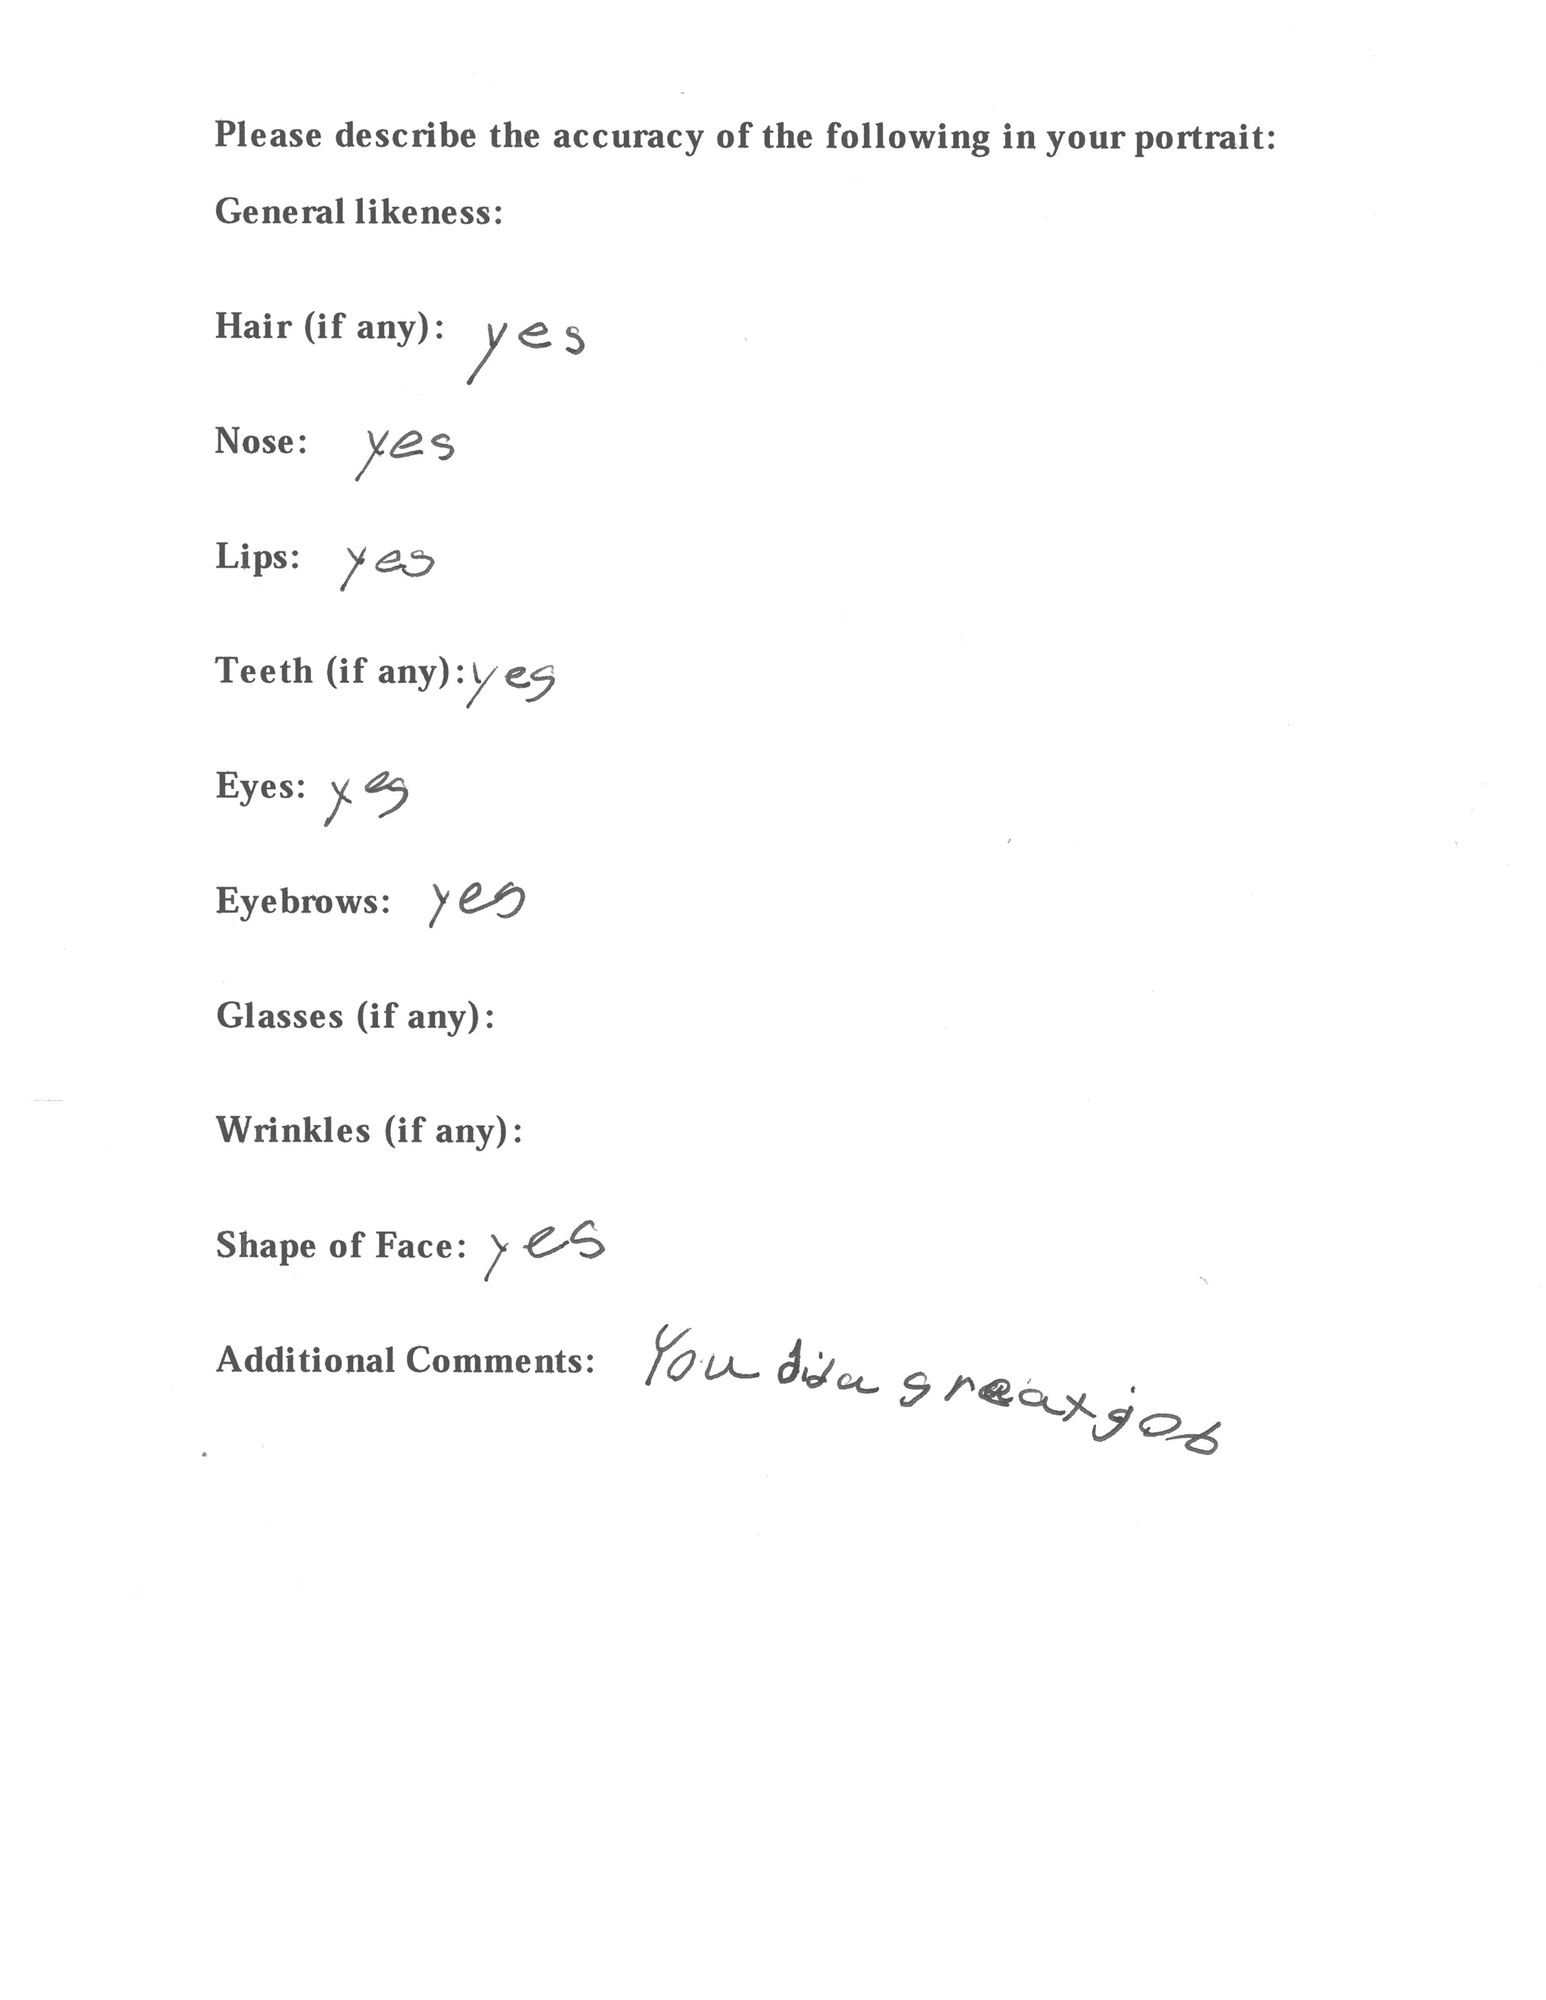 Please describe the accuracy of the following in your portrait:
General likeness:
Hair (if any): yes
Nose: yes
Lips: yes
Teeth (if any): yes
Eyes: yes
Eyebrows: yes
Glasses (if any):
Wrinkles (if any):
Shape of Face: yes
Additional Comments: You did a great job